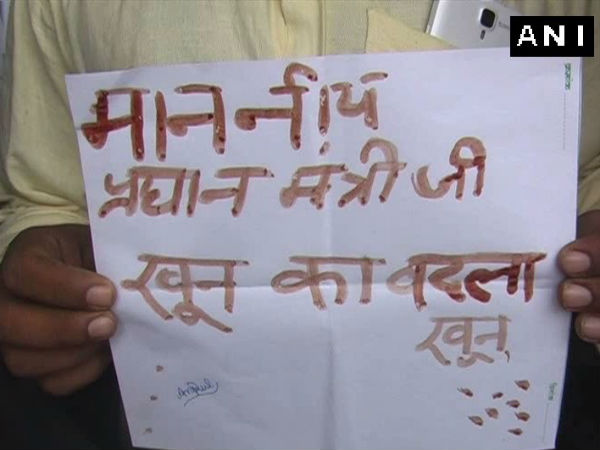 ANI
माननीय
प्रधान मंत्री जी
खून का बदला
खून